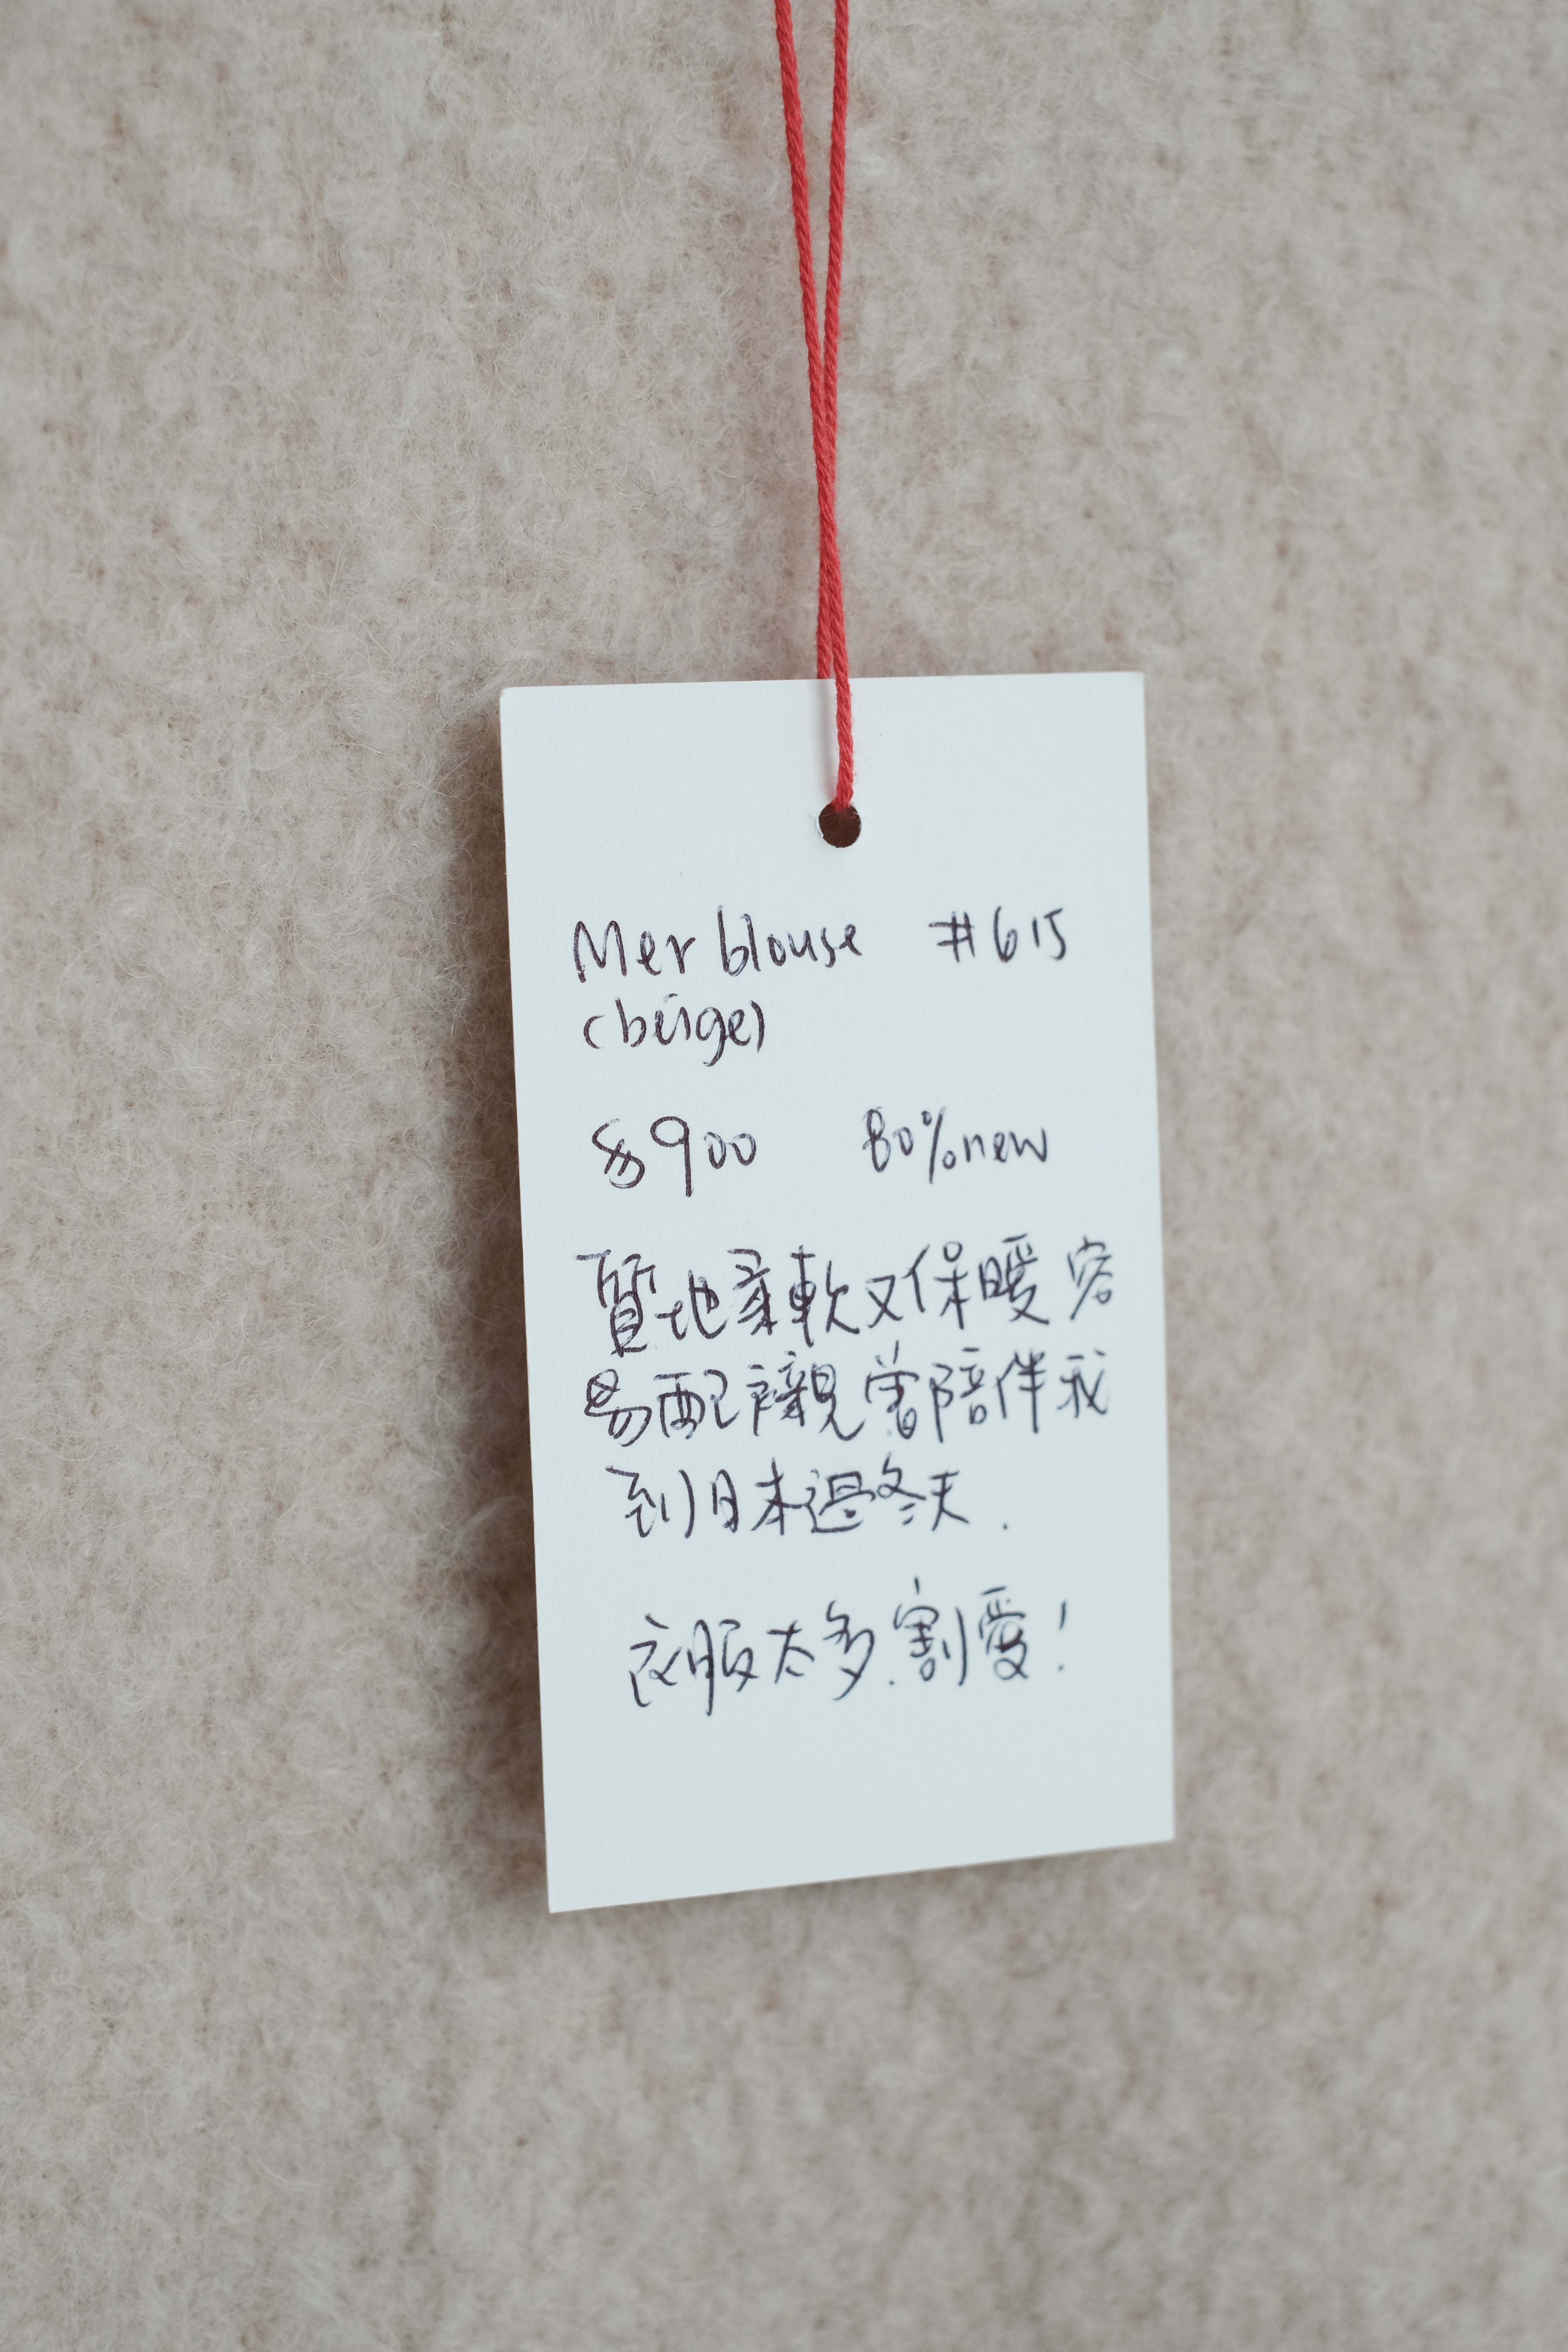 Mer blouse #615
(beige)
$900 80%new
質地柔軟又保暖 容
易配襯 曾陪伴我
到日本過冬天.
衣服太多.割愛!